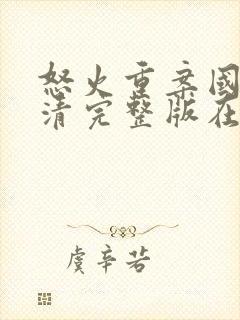 怒火重案國
清完整版在
虞辛若